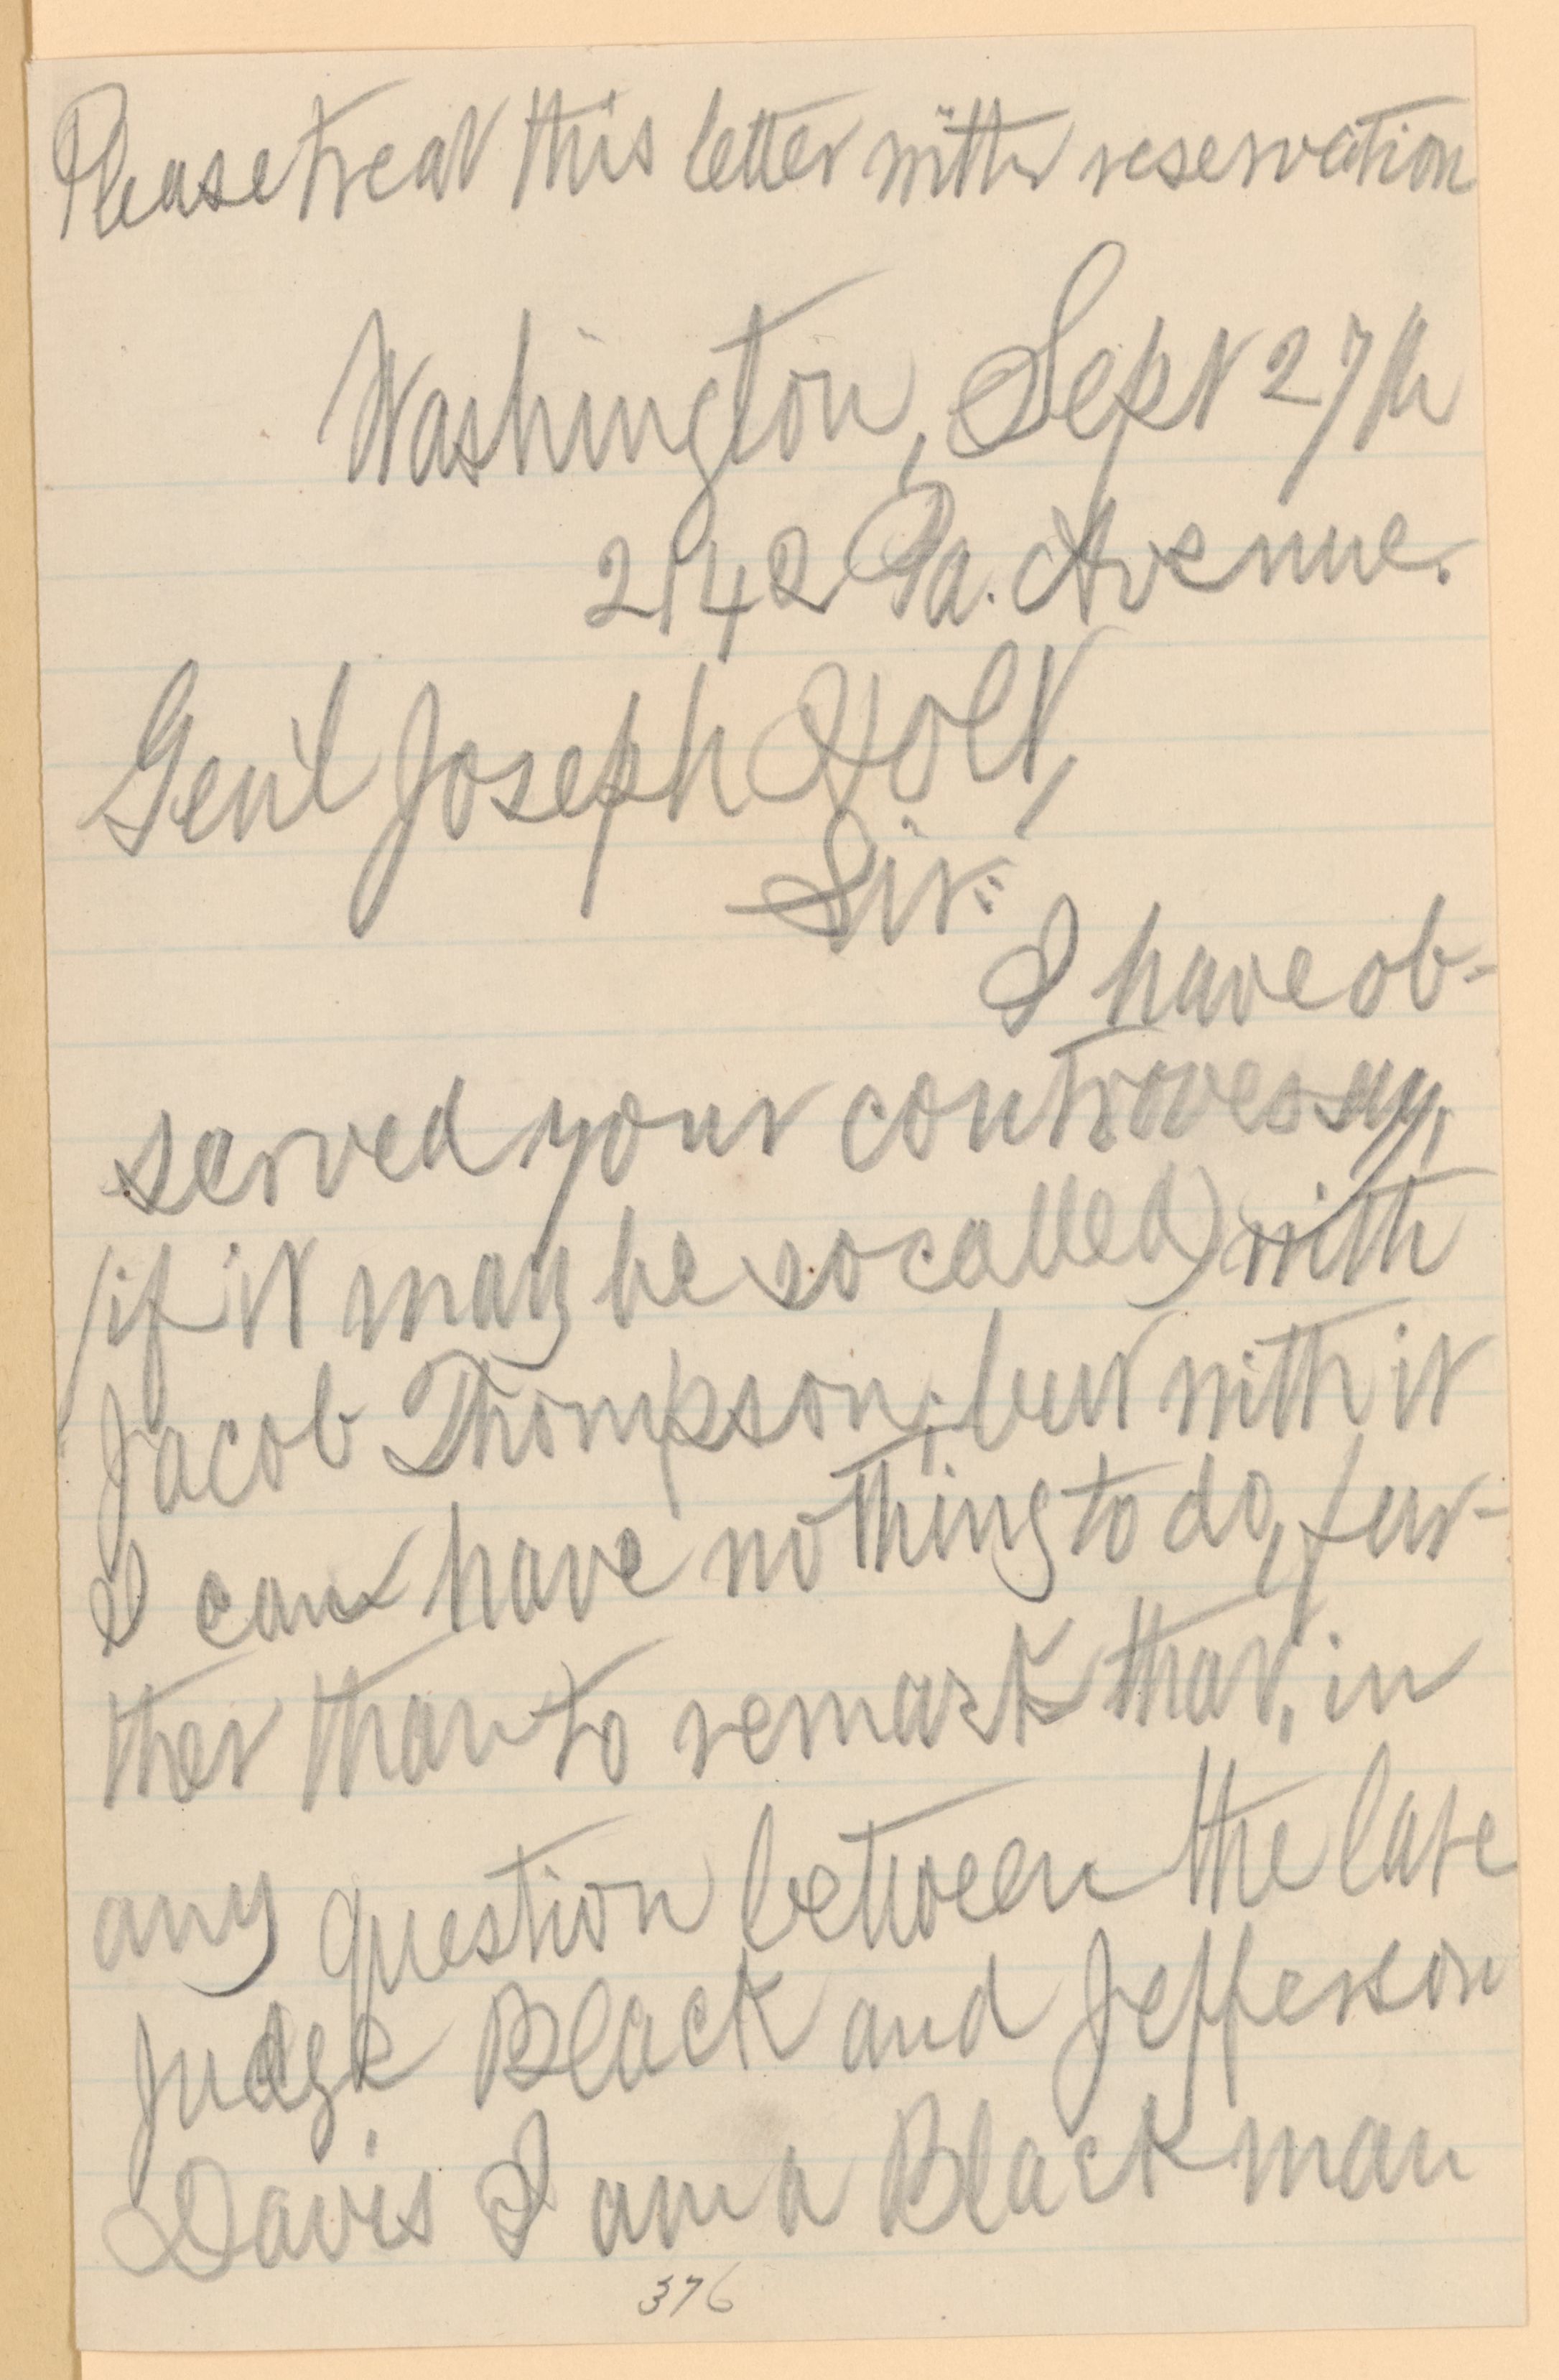 Please treat this letter with reservation
Washington, Sept 27th
2142 Pa. Avenue.
Gen'l Joseph Holt,
Sir:
I have ob-
served your controversy,
(if it may be so called) with
Jacob Thompson; but with it
I can have nothing to do, fur-
ther than to remark that, in
any question between the late
Judge Black and Jefferson
Davis I am a Black man
376